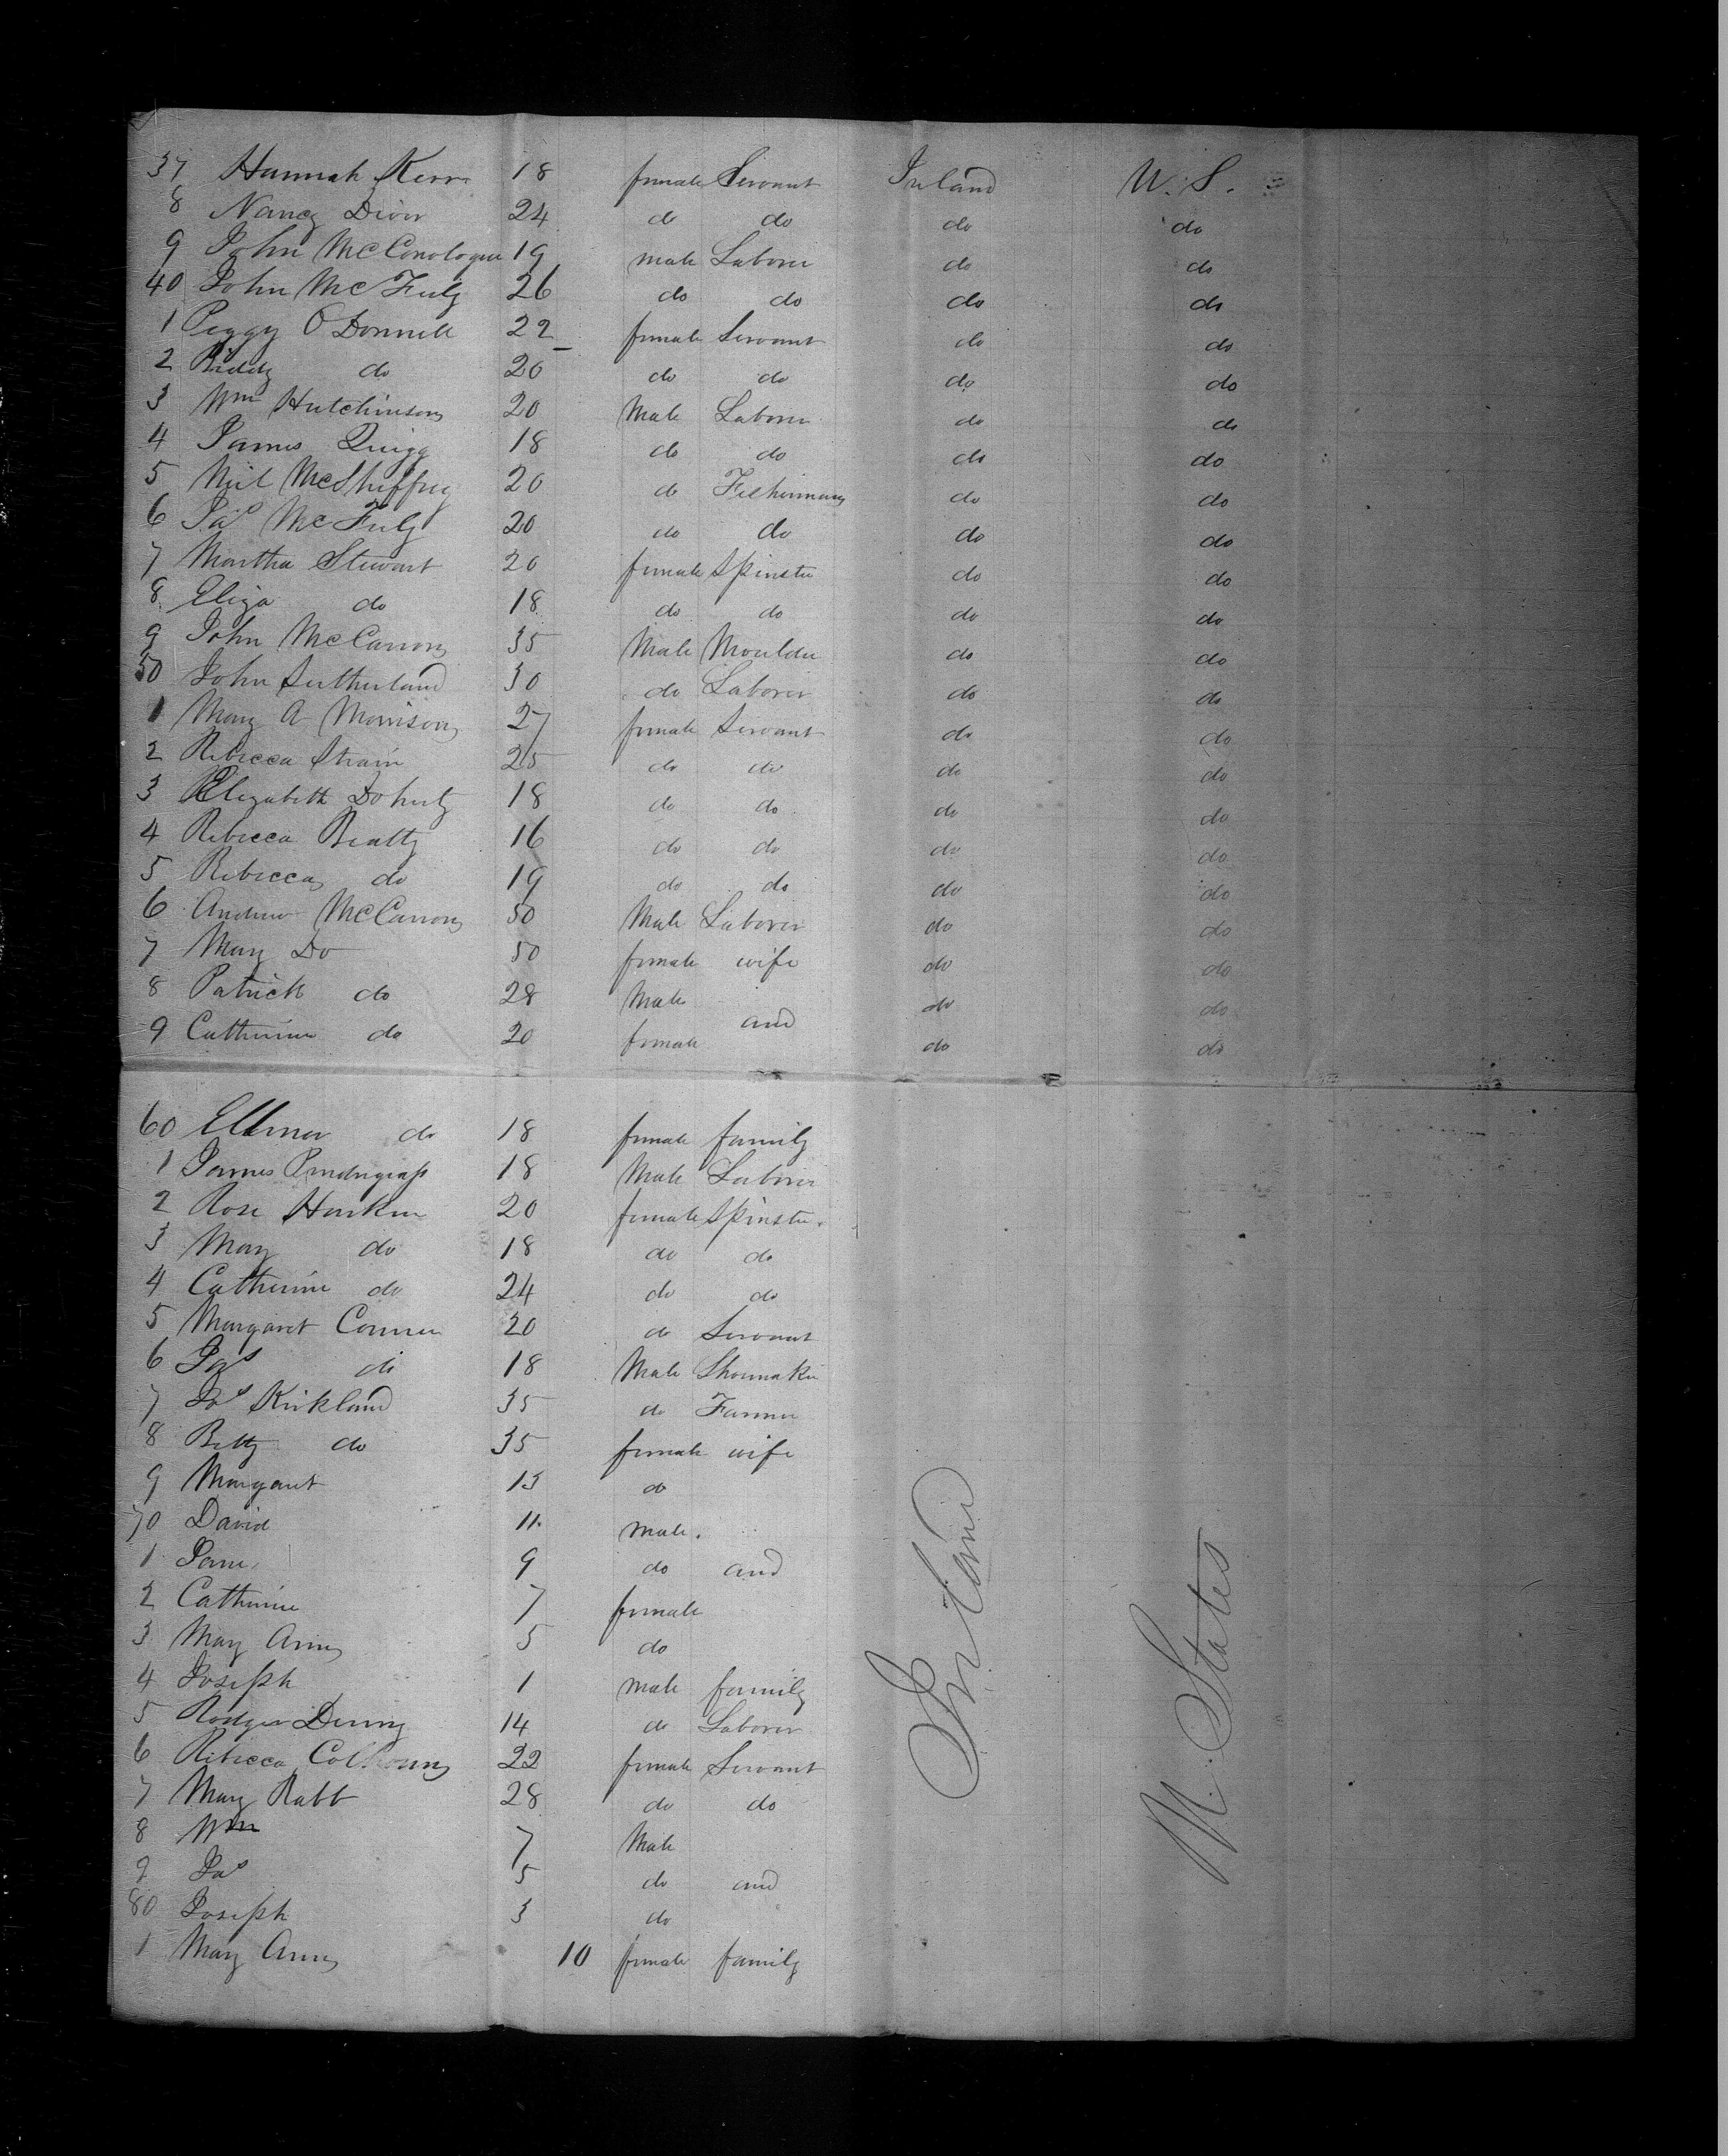 37 Hannah Kerr 18 female Servant Ireland U. S.
8 Nancy Diver 24 do do do do
9 John McConologue 19 male Laborer do do
40 John McFeely 26 do do do do
1 Peggy O Donnell 22 female Servant do do
2 Biddy do 20 do do do do
3 Wm Hutchinson 20 Male Laborer do do
4 James Quigg 18 do do do do
5 Neil McSheffrey 20 do Fisherman do do
6 Jas McFeely 20 do do do do
7 Martha Stewart 20 female Spinster do do
8 Eliza do 18 do do do do
9 John McCarron 35 Male Moulder do do
50 John Sutherland 30 do Laborer do do
1 Mary A Morrison 27 female Servant do do
2 Rebecca Strain 25 do do do do
3 Elizabeth Doherty 18 do do do do
4 Rebecca Beatty 16 do do do do
5 Rebecca do 19 do do do do
6 Andrew McCarron 50 Male Laborer do do
7 Mary Do 50 female wife do do
8 Patrick do 28 Male do do
and
9 Catherine do 20 female do do
60 Ellenor do 18 female family
1 James Prendergrass 18 Male Laborer
2 Rose Harkin 20 female Spinster
3 Mary do 18 do do
4 Catherine do 24 do do
5 Margaret Conner 20 do Servant
6 Jas do 18 Male Shoemaker
7 Jos Kirkland 35 do Farmer
8 Betty do 35 female wife
9 Margaret 13 do
70 David 11 male
1 Jane 9 do and
2 Catherine 7 female
3 Mary Ann 5 do
4 Joseph 1 male family
5 Rodger Deeny 14 do Laborer
6 Rebecca Colhoun 22 female Servant
7 Mary Rabb 28 do do
8 Wm 7 Male
9 Jas 5 do and
80 Joseph 3 do
1 Mary Ann 10 female family
Ireland
U. States